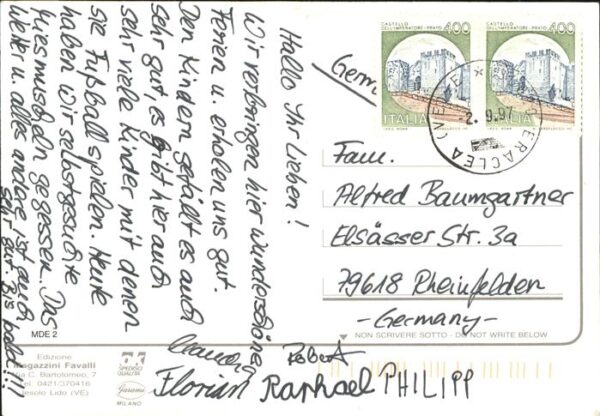 Hallo Ihr Lieben!
Wir verbringen hier wunderschöne
Ferien u. erholen uns gut.
Den Kindern gefällt es auch
sehr gut, es gibt hier auch
sehr viele Kinder mit denen
sie Fußball spielen. Heute
haben wir selbstgesuchte
Miesmuscheln gegessen. Das
Wetter u. alles andere ist auch
sehr gut. Bis bald!!!
Robert
Florian Raphael PHILIPP
CASTELLO
DELL'IMPERATORE - PRATO
400
ITALIA
CASTELLO
DELL'IMPERATORE - PRATO
400
ITALIA
ERACLEA (VE)
2.9.97
Germany
Fam.
Alfred Baumgartner
Elsässer Str. 3a
79618 Rheinfelden
-Germany-
NON SCRIVERE SOTTO - DO NOT WRITE BELOW
MDE 2
Edizione
Magazzini Favalli
Via C. Bartolomeo, 7
Tel. 0421/370416
Jesolo Lido (VE)
Garami
MILANO